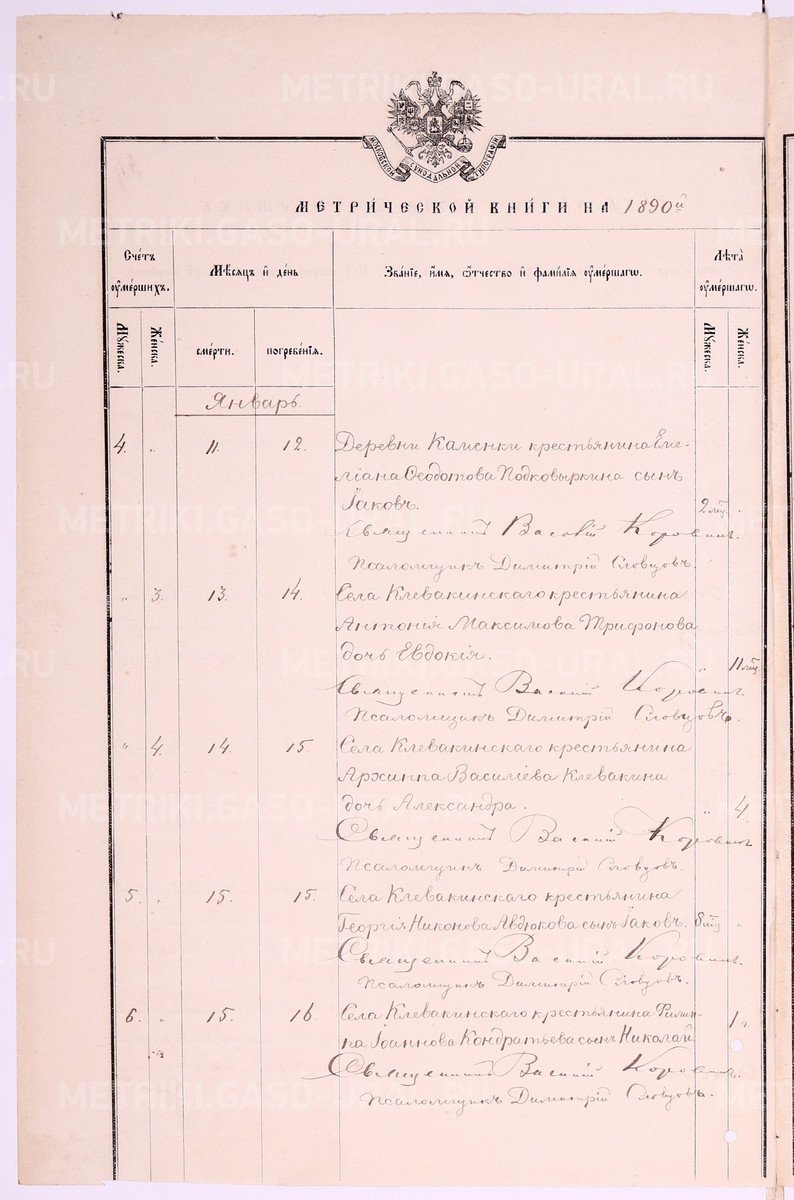 METRIKI.GASO-URAL.RU
МОСКОВСКОЙ СѴНОДАЛЬНОЙ ТИПОГРАФІИ
МЕТРИ́ЧЕСКОЙ КНИ́ГИ НА 1890й
Сче́тъ ᲂу҆ме́ршихъ.
Мѣ́сяцъ и҆ де́нь
Зва́нїе, и҆́мя, ѻ҆́тчество и҆ фами́лїа ᲂу҆ме́ршагѡ.
Лѣ́та ᲂу҆ме́ршагѡ.
Мꙋ́жеска.
Же́нска.
сме́рти.
погребе́нїѧ.
Мꙋ́жеска.
Же́нска.
Январь.
4. „ 11. 12. Деревни Каменки крестьянина Еме-
ліана Ѳеодотова Подковыркина сынъ
Іаковъ. 2 мѣс. „
Священникъ Василій Коровинъ.
Псаломщикъ Димитрій Словцовъ.
„ 3. 13. 14. Села Клевакинскаго крестьянина
Антонія Максимова Трифонова
дочь Евдокія. „ 11 мѣс.
Священникъ Василій Коровинъ.
Псаломщикъ Димитрій Словцовъ.
„ 4. 14. 15. Села Клевакинскаго крестьянина
Архиппа Василіева Клевакина
дочь Александра. „ 4.
Священникъ Василій Коровинъ
Псаломщикъ Димитрій Словцовъ.
5. „ 15. 15. Села Клевакинскаго крестьянина
Георгія Никонова Авдюкова сынъ Іаковъ. 8 мѣс. „
Священникъ Василій Коровинъ.
Псаломщикъ Димитрій Словцовъ.
6. „ 15. 16. Села Клевакинскаго крестьянина Филип-
па Іоаннова Кондратьева сынъ Николай 1 г.
Священникъ Василій Коровинъ.
Псаломщикъ Димитрій Словцовъ.